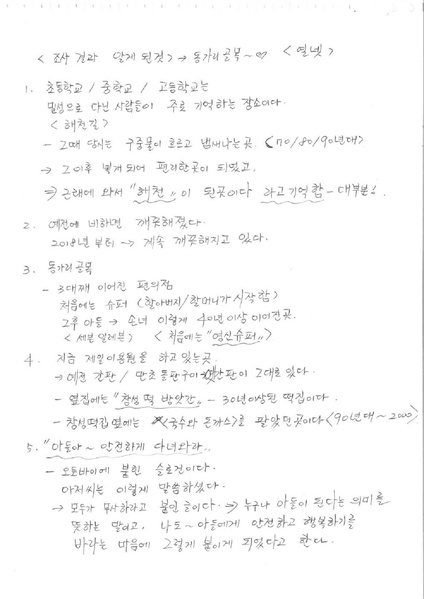 <조사 경과 알게 된것> → 동가리 골목 ~ <열넷>
1. 초등학교 / 중학교 / 고등학교는
밀성으로 다닌 사람들이 주로 기억하는 장소이다.
<해천길>
- 그때 당시는 구중물이 흐르고 냄새나는곳. <70/80/90년대>
→ 그이후 복개 되어 편리한곳이 되었고,
⇒ 근래에 와서 "해천" 이 된곳이다 라고기억함 - 대부분!
2. 예전에 비하면 깨끗해졌다.
2018년 부터 → 계속 깨끗해지고 있다.
3. 동가리 골목
- 3대째 이어진 편의점
처음에는 슈퍼 (할아버지/할머니가 시작함)
그후 아들 → 손녀 이렇게 40년이상 이어진곳.
<세븐일레븐> <처음에는 "영신슈퍼">
4. 지금 제일이용원을 하고있는곳.
⇒ 예전 간판 / 만초 돌판구이 옛간판이 그대로 있다.
- 옆집에는 "창성 떡 방앗간" - 30년이상된 떡집이다.
- 창성떡집 옆에는 <국수와 돈까스>로 팔았던곳이다 <90년대~2000>
5. "아들아~ 안전하게 다녀와라.."
- 오토바이에 붙힌 슬로건이다.
아저씨는 이렇게 말씀하셨다.
→ 모두가 무사하라고 붙인 글이다. ⇒ 누구나 아들이 된다는 의미를
뜻하는 말이고, 나도~ 아들에게 안전하고 행복하기를
바라는 마음에 그렇게 붙이게 되었다고 한다.